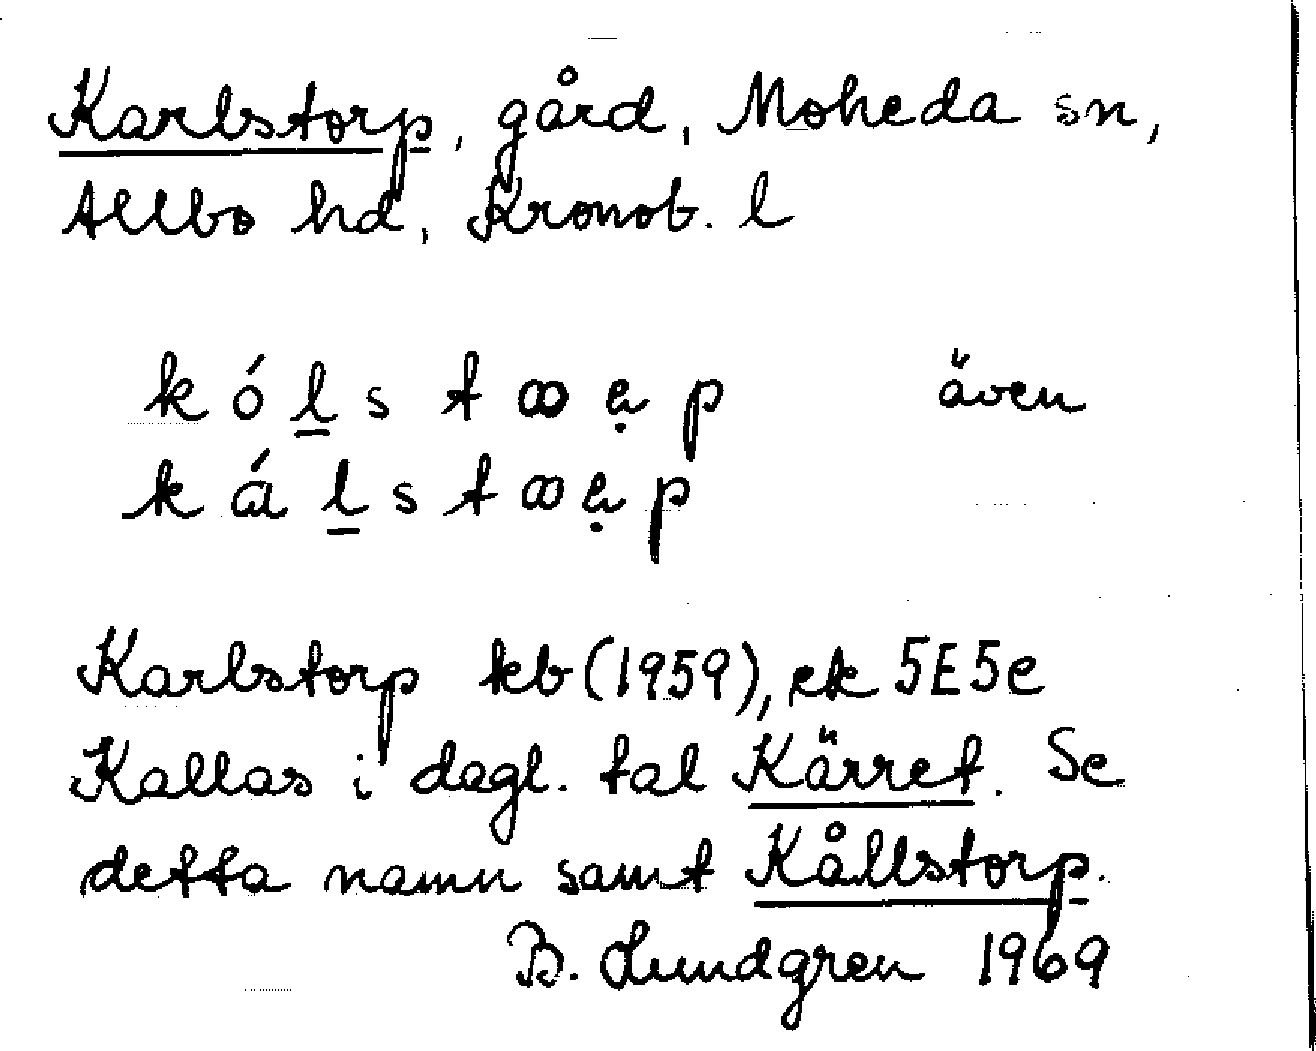 Karlstorp, gård, Moheda sn,
Allbo hd, Kronob. l
k ó l̲ s t ꝏ ạ p även
k á l̲ s t ꝏ ạ p
Karlstorp kb (1959), ek 5E5e
Kallas i dagl. tal Kärret. Se
detta namn samt Kållstorp.
B. Lundgren 1969